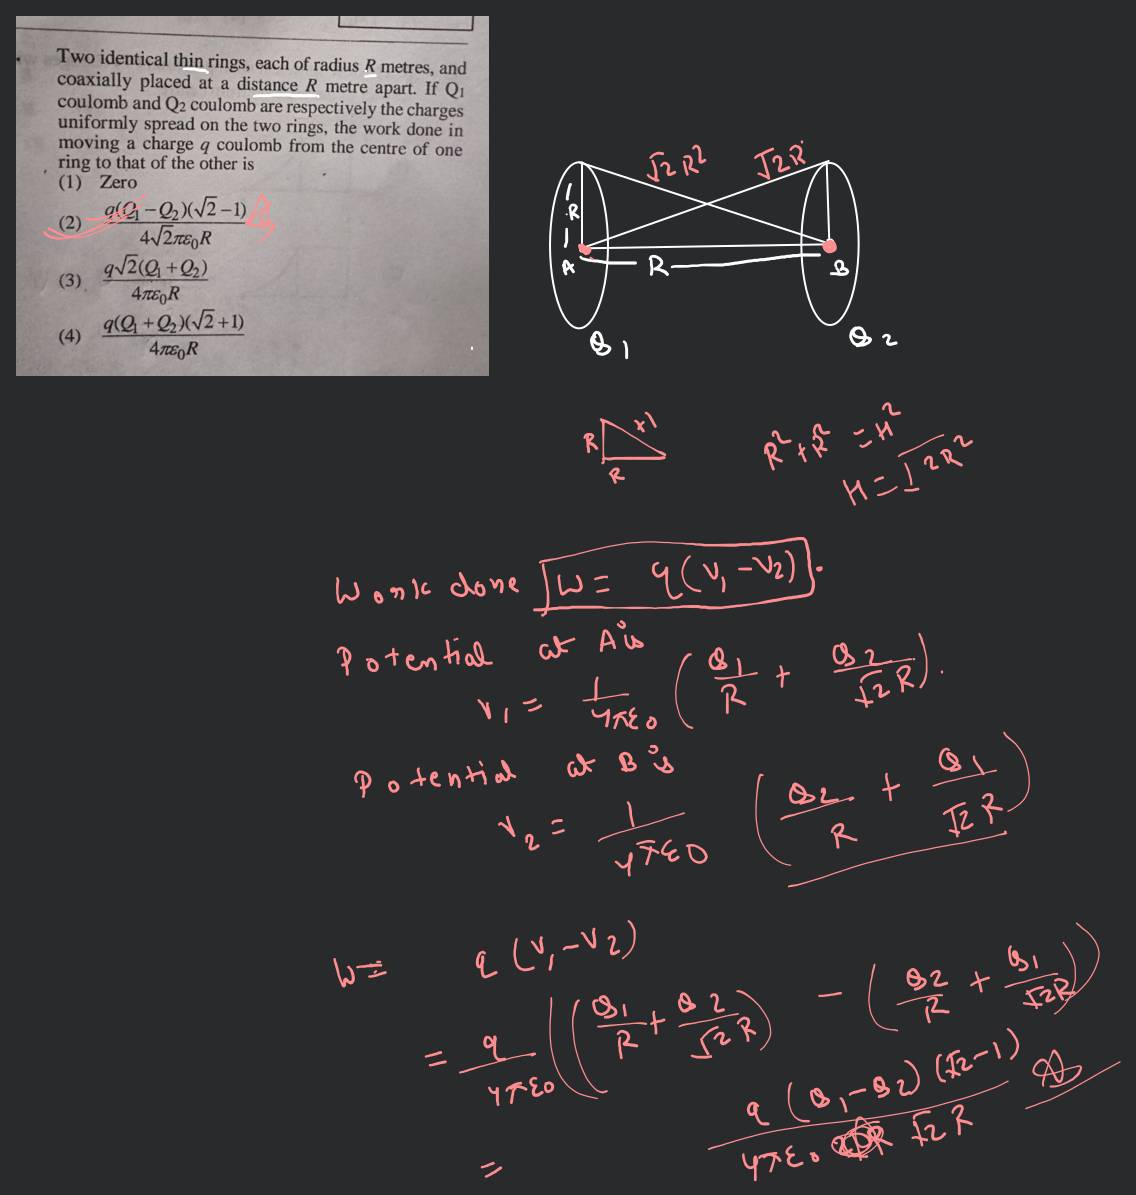 Two identical thin rings, each of radius R metres, and
coaxially placed at a distance R metre apart. If Q₁
coulomb and Q₂ coulomb are respectively the charges
uniformly spread on the two rings, the work done in
moving a charge q coulomb from the centre of one
ring to that of the other is
(1) Zero
(2) q(Q₁ – Q₂)(√2 – 1) / 4√2πε₀R
(3) q√2(Q₁ + Q₂) / 4πε₀R
(4) q(Q₁ + Q₂)(√2 + 1) / 4πε₀R
√2 R² √2 R
R
A R B
Q₁ Q₂
R H
R
R² + R² = H²
H = √2R²
Work done W = q(V₁ – V₂).
Potential at A is
V₁ = 1/4πε₀ (Q₁/R + Q₂/√2 R).
Potential at B is
V₂ = 1/4πε₀ (Q₂/R + Q₁/√2 R)
W = q (V₁ – V₂)
= q/4πε₀ ((Q₁/R + Q₂/√2 R) – (Q₂/R + Q₁/√2R))
= q (Q₁ – Q₂) (√2 – 1) / 4πε₀ √2 R